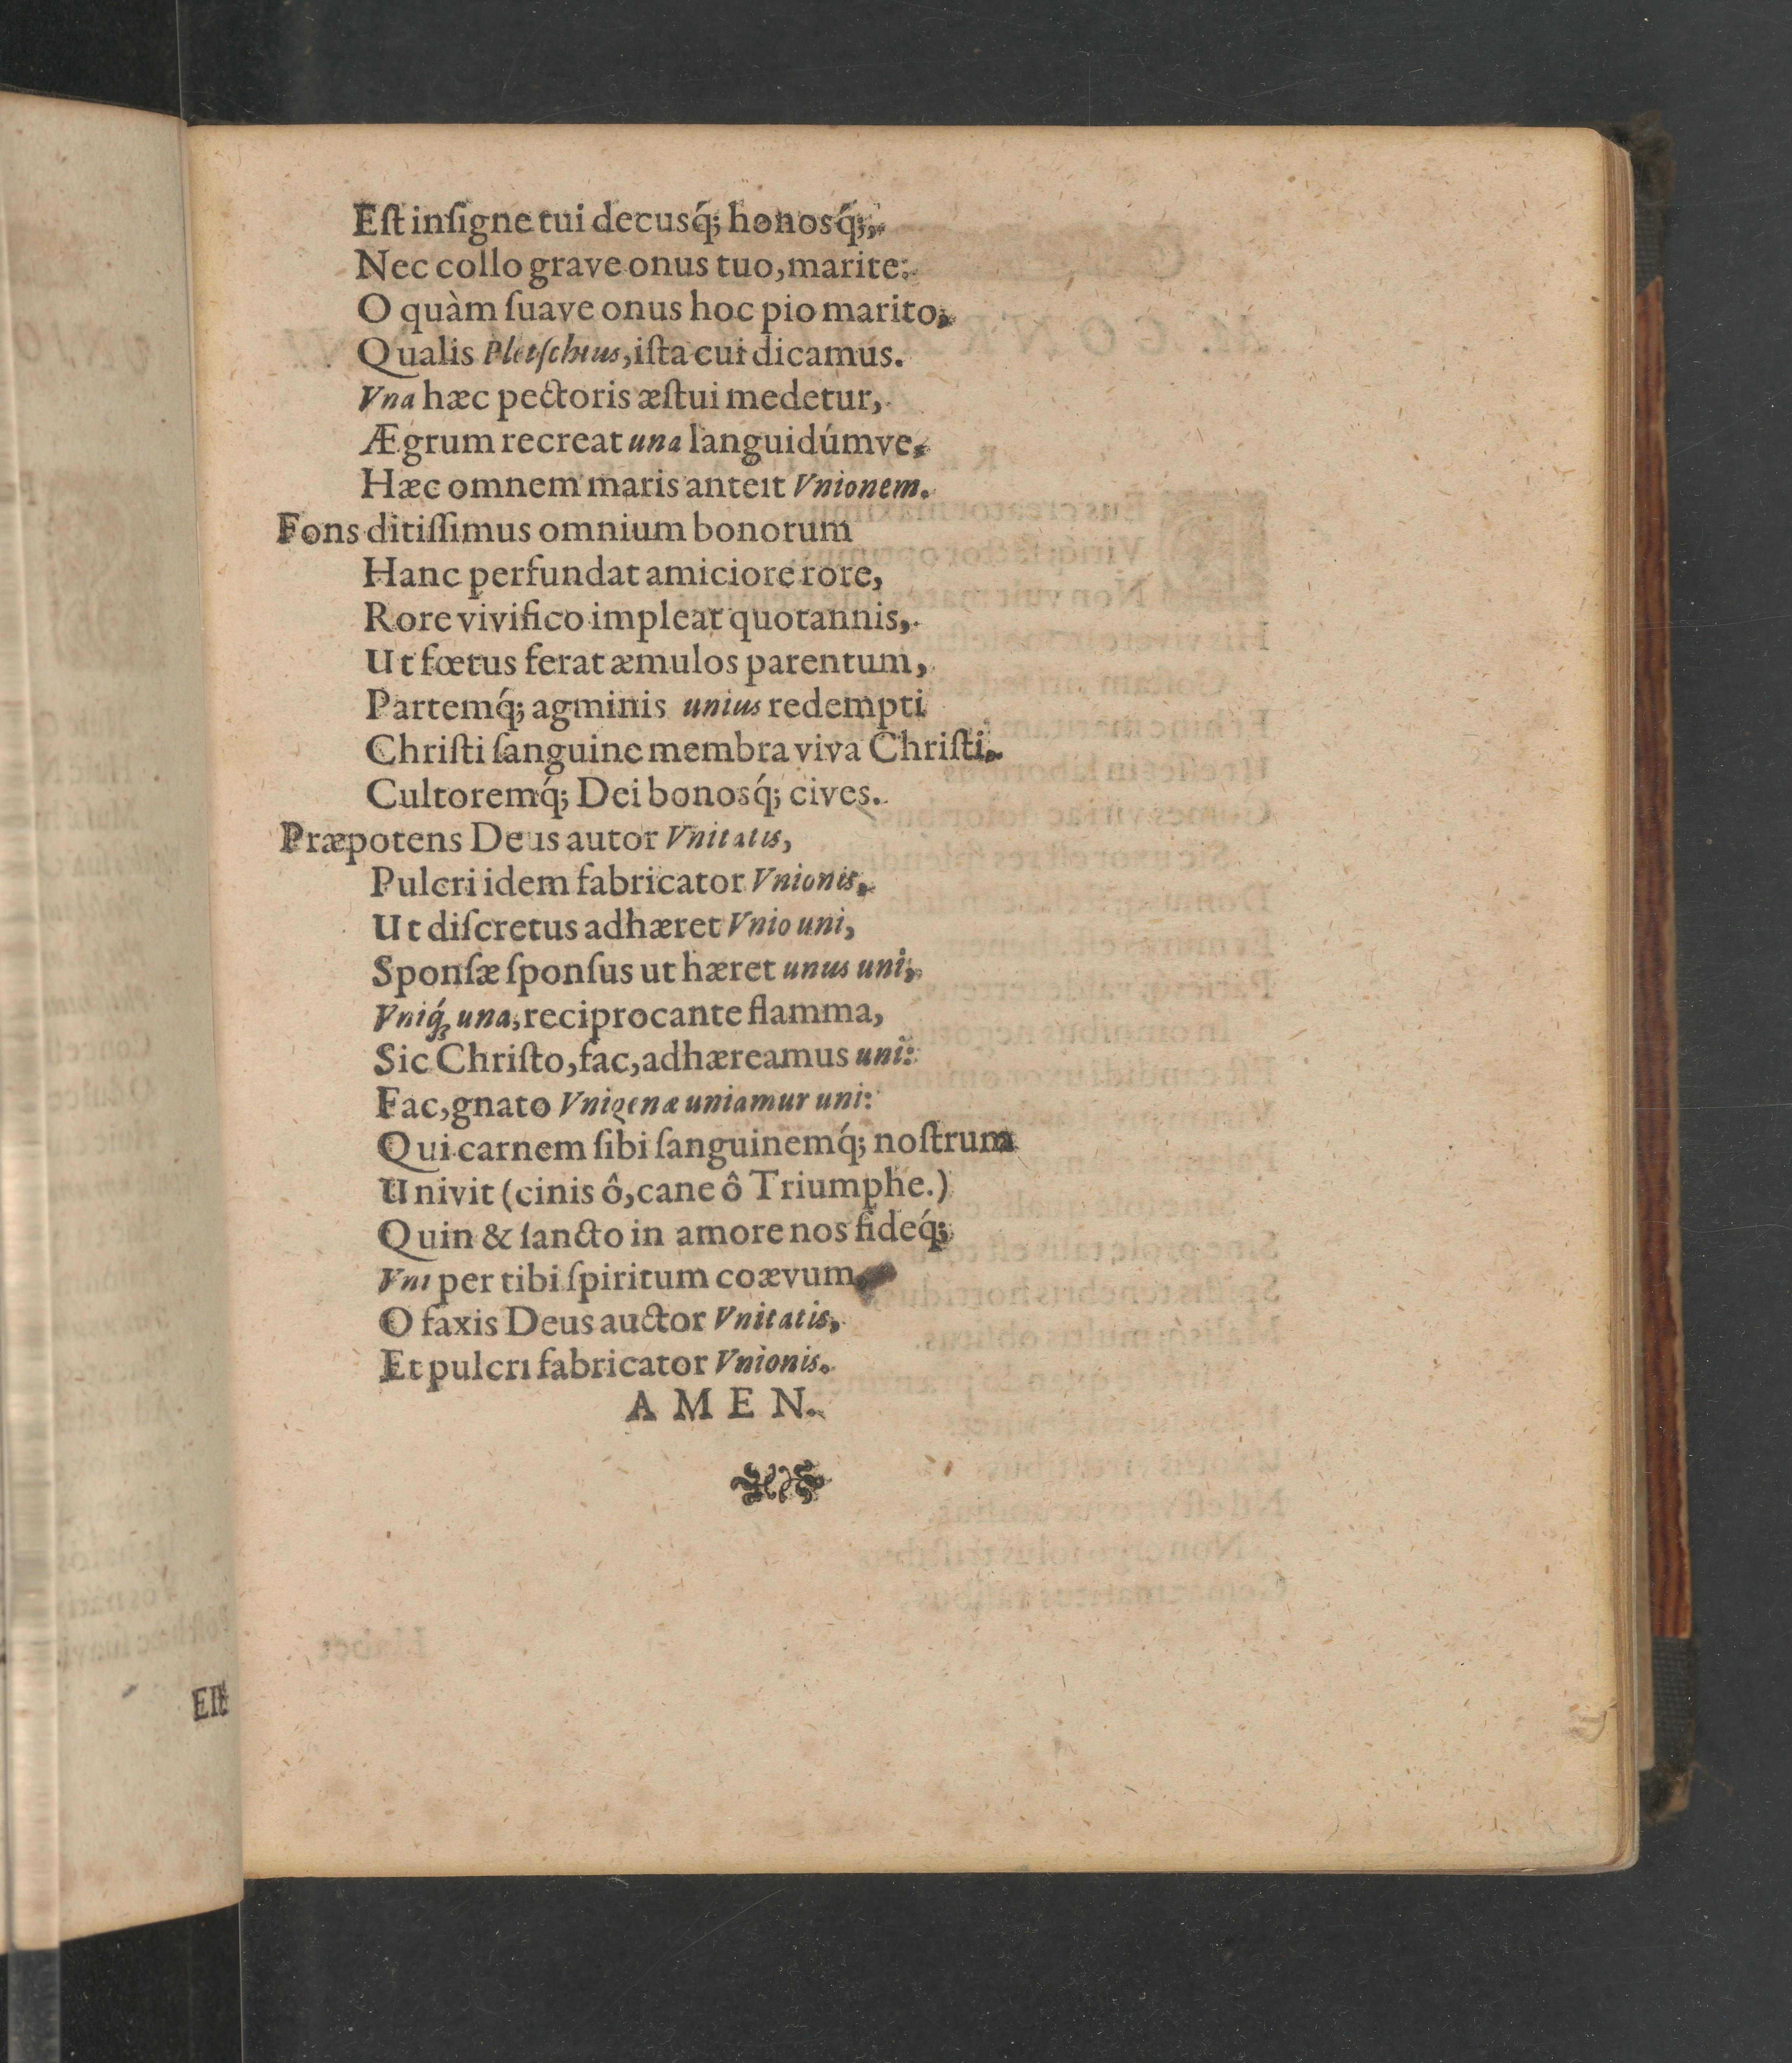 Eſt inſigne tui decusq́; honosq́;,
Nec collo grave onus tuo, marite:
O quàm ſuave onus hoc pio marito,
Qualis Pletſchius, iſta cui dicamus.
Vna hæc pectoris æſtui medetur,
Ægrum recreat una languidúmve,
Hæc omnem maris anteit Vnionem.
Fons ditiſſimus omnium bonorum
Hanc perfundat amiciore rore,
Rore vivifico impleat quotannis,
Ut fœtus ferat æmulos parentum,
Partemq́; agminis unius redempti
Chriſti ſanguine membra viva Chriſti,
Cultoremq́; Dei bonosq́; cives.
Præpotens Deus autor Vnitatis,
Pulcri idem fabricator Vnionis,
Ut diſcretus adhæret Vnio uni,
Sponſæ ſponſus ut hæret unus uni,
Vniq́; una, reciprocante flamma,
Sic Chriſto, fac, adhæreamus uni:
Fac, gnato Vnigenæ uniamur uni:
Qui carnem ſibi ſanguinemq́; noſtrum
Univit (cinis ô, cane ô Triumphe.)
Quin & ſancto in amore nos fideq́;
Vni per tibi ſpiritum coævum,
O faxis Deus auctor Vnitatis,
Et pulcri fabricator Vnionis.
AMEN.